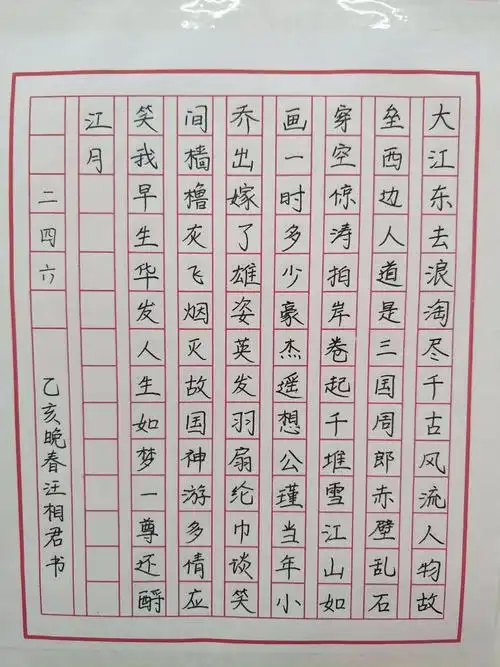 大江东去浪淘尽千古风流人物故
垒西边人道是三国周郎赤壁乱石
穿空惊涛拍岸卷起千堆雪江山如
画一时多少豪杰遥想公瑾当年小
乔出嫁了雄姿英发羽扇纶巾谈笑
间樯橹灰飞烟灭故国神游多情应
笑我早生华发人生如梦一尊还酹
江月
二四六
乙亥晚春汪相君书